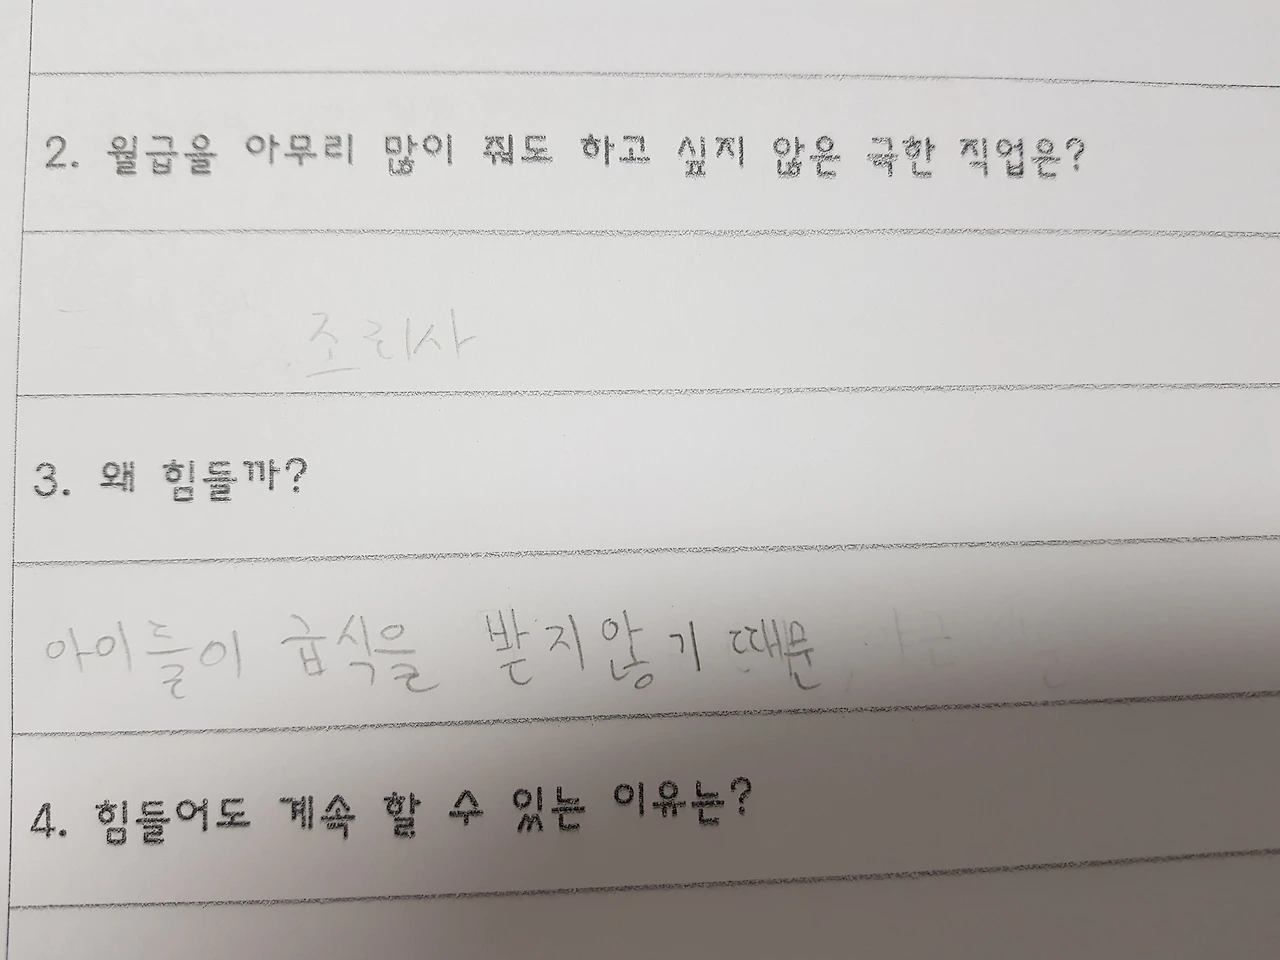 2. 월급을 아무리 많이 줘도 하고 싶지 않은 극한 직업은?
조리사
3. 왜 힘들까?
아이들이 급식을 받지않기 때문
4. 힘들어도 계속 할 수 있는 이유는?